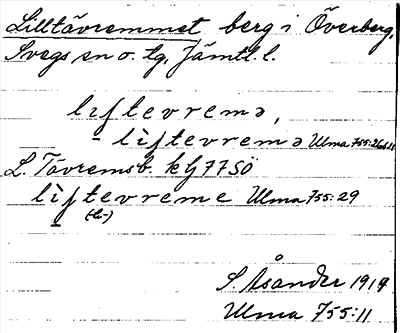 Lilltävremmet berg i Överberg,
Svegs sn o. tg, Jämtl. l.
liftevremə,
liftevremə Ulma 755:
L. Tävremsb. kG 77 SÖ
liftevreme Ulma 755:29
(l-)
S. Åsander 1919
Ulma 755:11